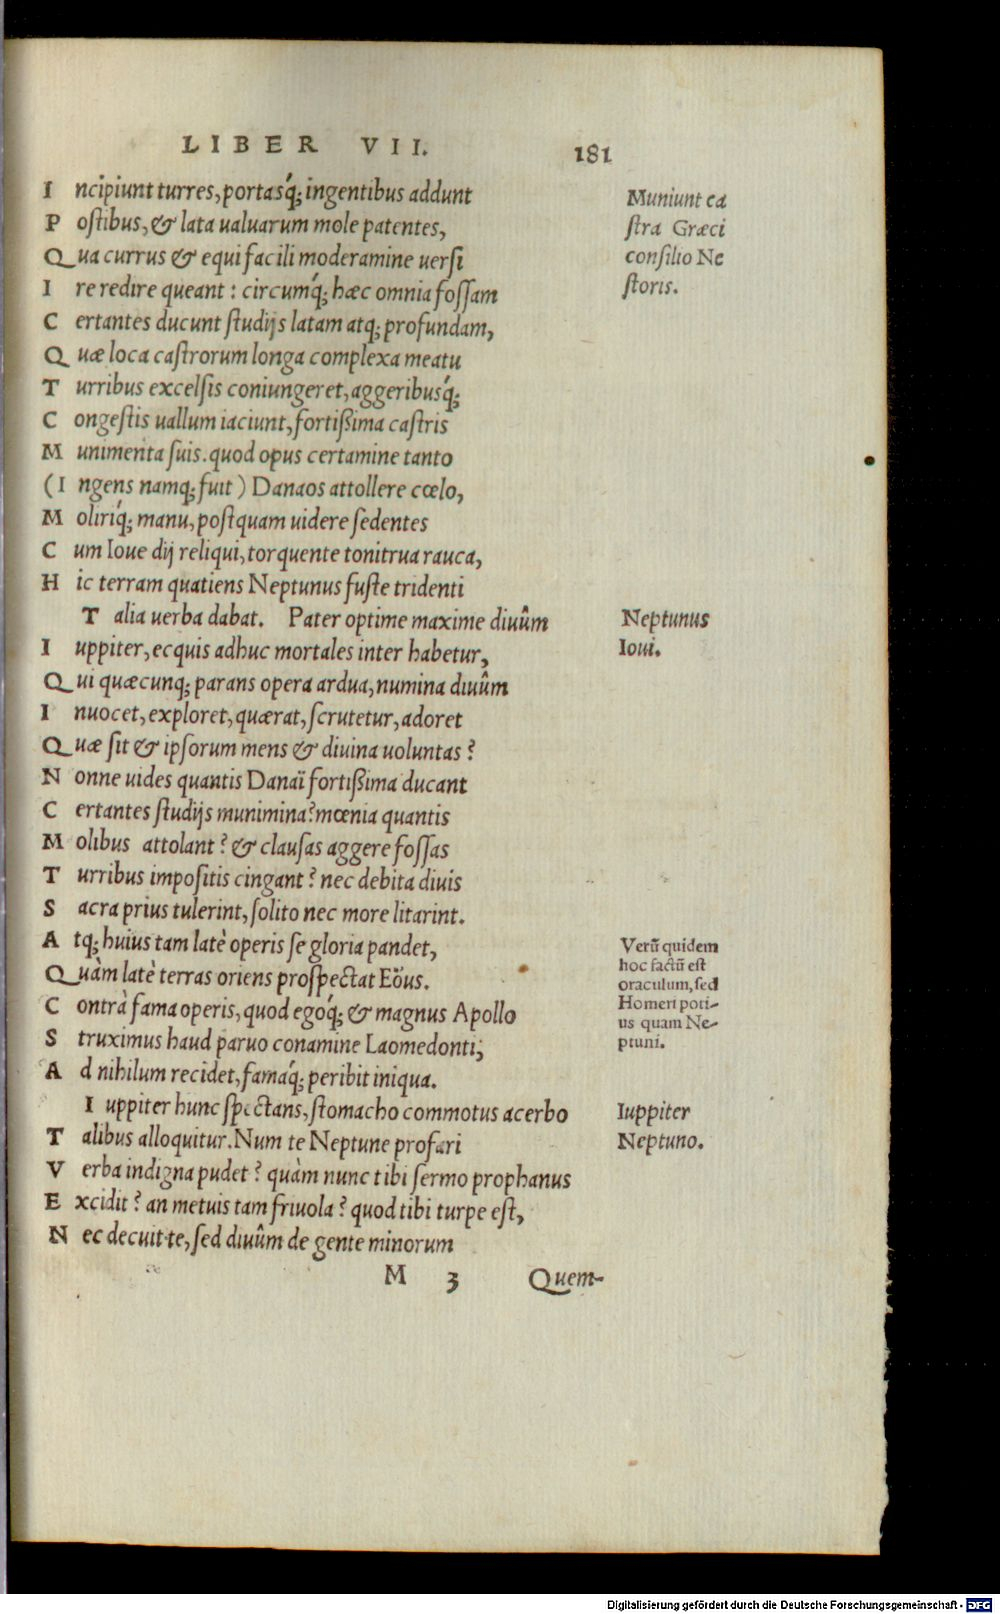 LIBER VII. 181
Incipiunt turres, portasq́; ingentibus addunt
Postibus, & lata ualuarum mole patentes,
Qua currus & equi facili moderamine uersi
Ire redire queant : circumq́; hæc omnia fossam
Certantes ducunt studijs latam atq; profundam,
Quæ loca castrorum longa complexa meatu
Turribus excelsis coniungeret, aggeribusq́;
Congestis uallum iaciunt, fortißima castris
Munimenta suis. quod opus certamine tanto
(Ingens namq; fuit) Danaos attollere cœlo,
Moliriq́; manu, postquam uidere sedentes
Cum Ioue dij reliqui, torquente tonitrua rauca,
Hic terram quatiens Neptunus fuste tridenti
Talia uerba dabat. Pater optime maxime diuûm
Iuppiter, ecquis adhuc mortales inter habetur,
Qui quæcunq; parans opera ardua, numina diuûm
Inuocet, exploret, quærat, scrutetur, adoret
Quæ sit & ipsorum mens & diuina uoluntas ?
Nonne uides quantis Danaï fortißima ducant
Certantes studijs munimina? mœnia quantis
Molibus attolant ? & clausas aggere fossas
Turribus impositis cingant ? nec debita diuis
Sacra prius tulerint, solito nec more litarint.
Atq; huius tam latè operis se gloria pandet,
Quàm latè terras oriens prospectat Eöus.
Contrà fama operis, quod egoq́; & magnus Apollo
Struximus haud paruo conamine Laomedonti;
Ad nihilum recidet, famaq́; peribit iniqua.
Iuppiter hunc spectans, stomacho commotus acerbo
Talibus alloquitur. Num te Neptune profari
Verba indigna pudet ? quàm nunc tibi sermo prophanus
Excidit ? an metuis tam friuola ? quod tibi turpe est,
Nec decuit te, sed diuûm de gente minorum
M 3 Quem-
Muniunt ca
stra Græci
consilio Ne
storis.
Neptunus
Ioui.
Verũ quidem
hoc factũ est
oraculum, sed
Homeri poti-
us quam Ne-
ptuni.
Iuppiter
Neptuno.
Digitalisierung gefördert durch die Deutsche Forschungsgemeinschaft - DFG